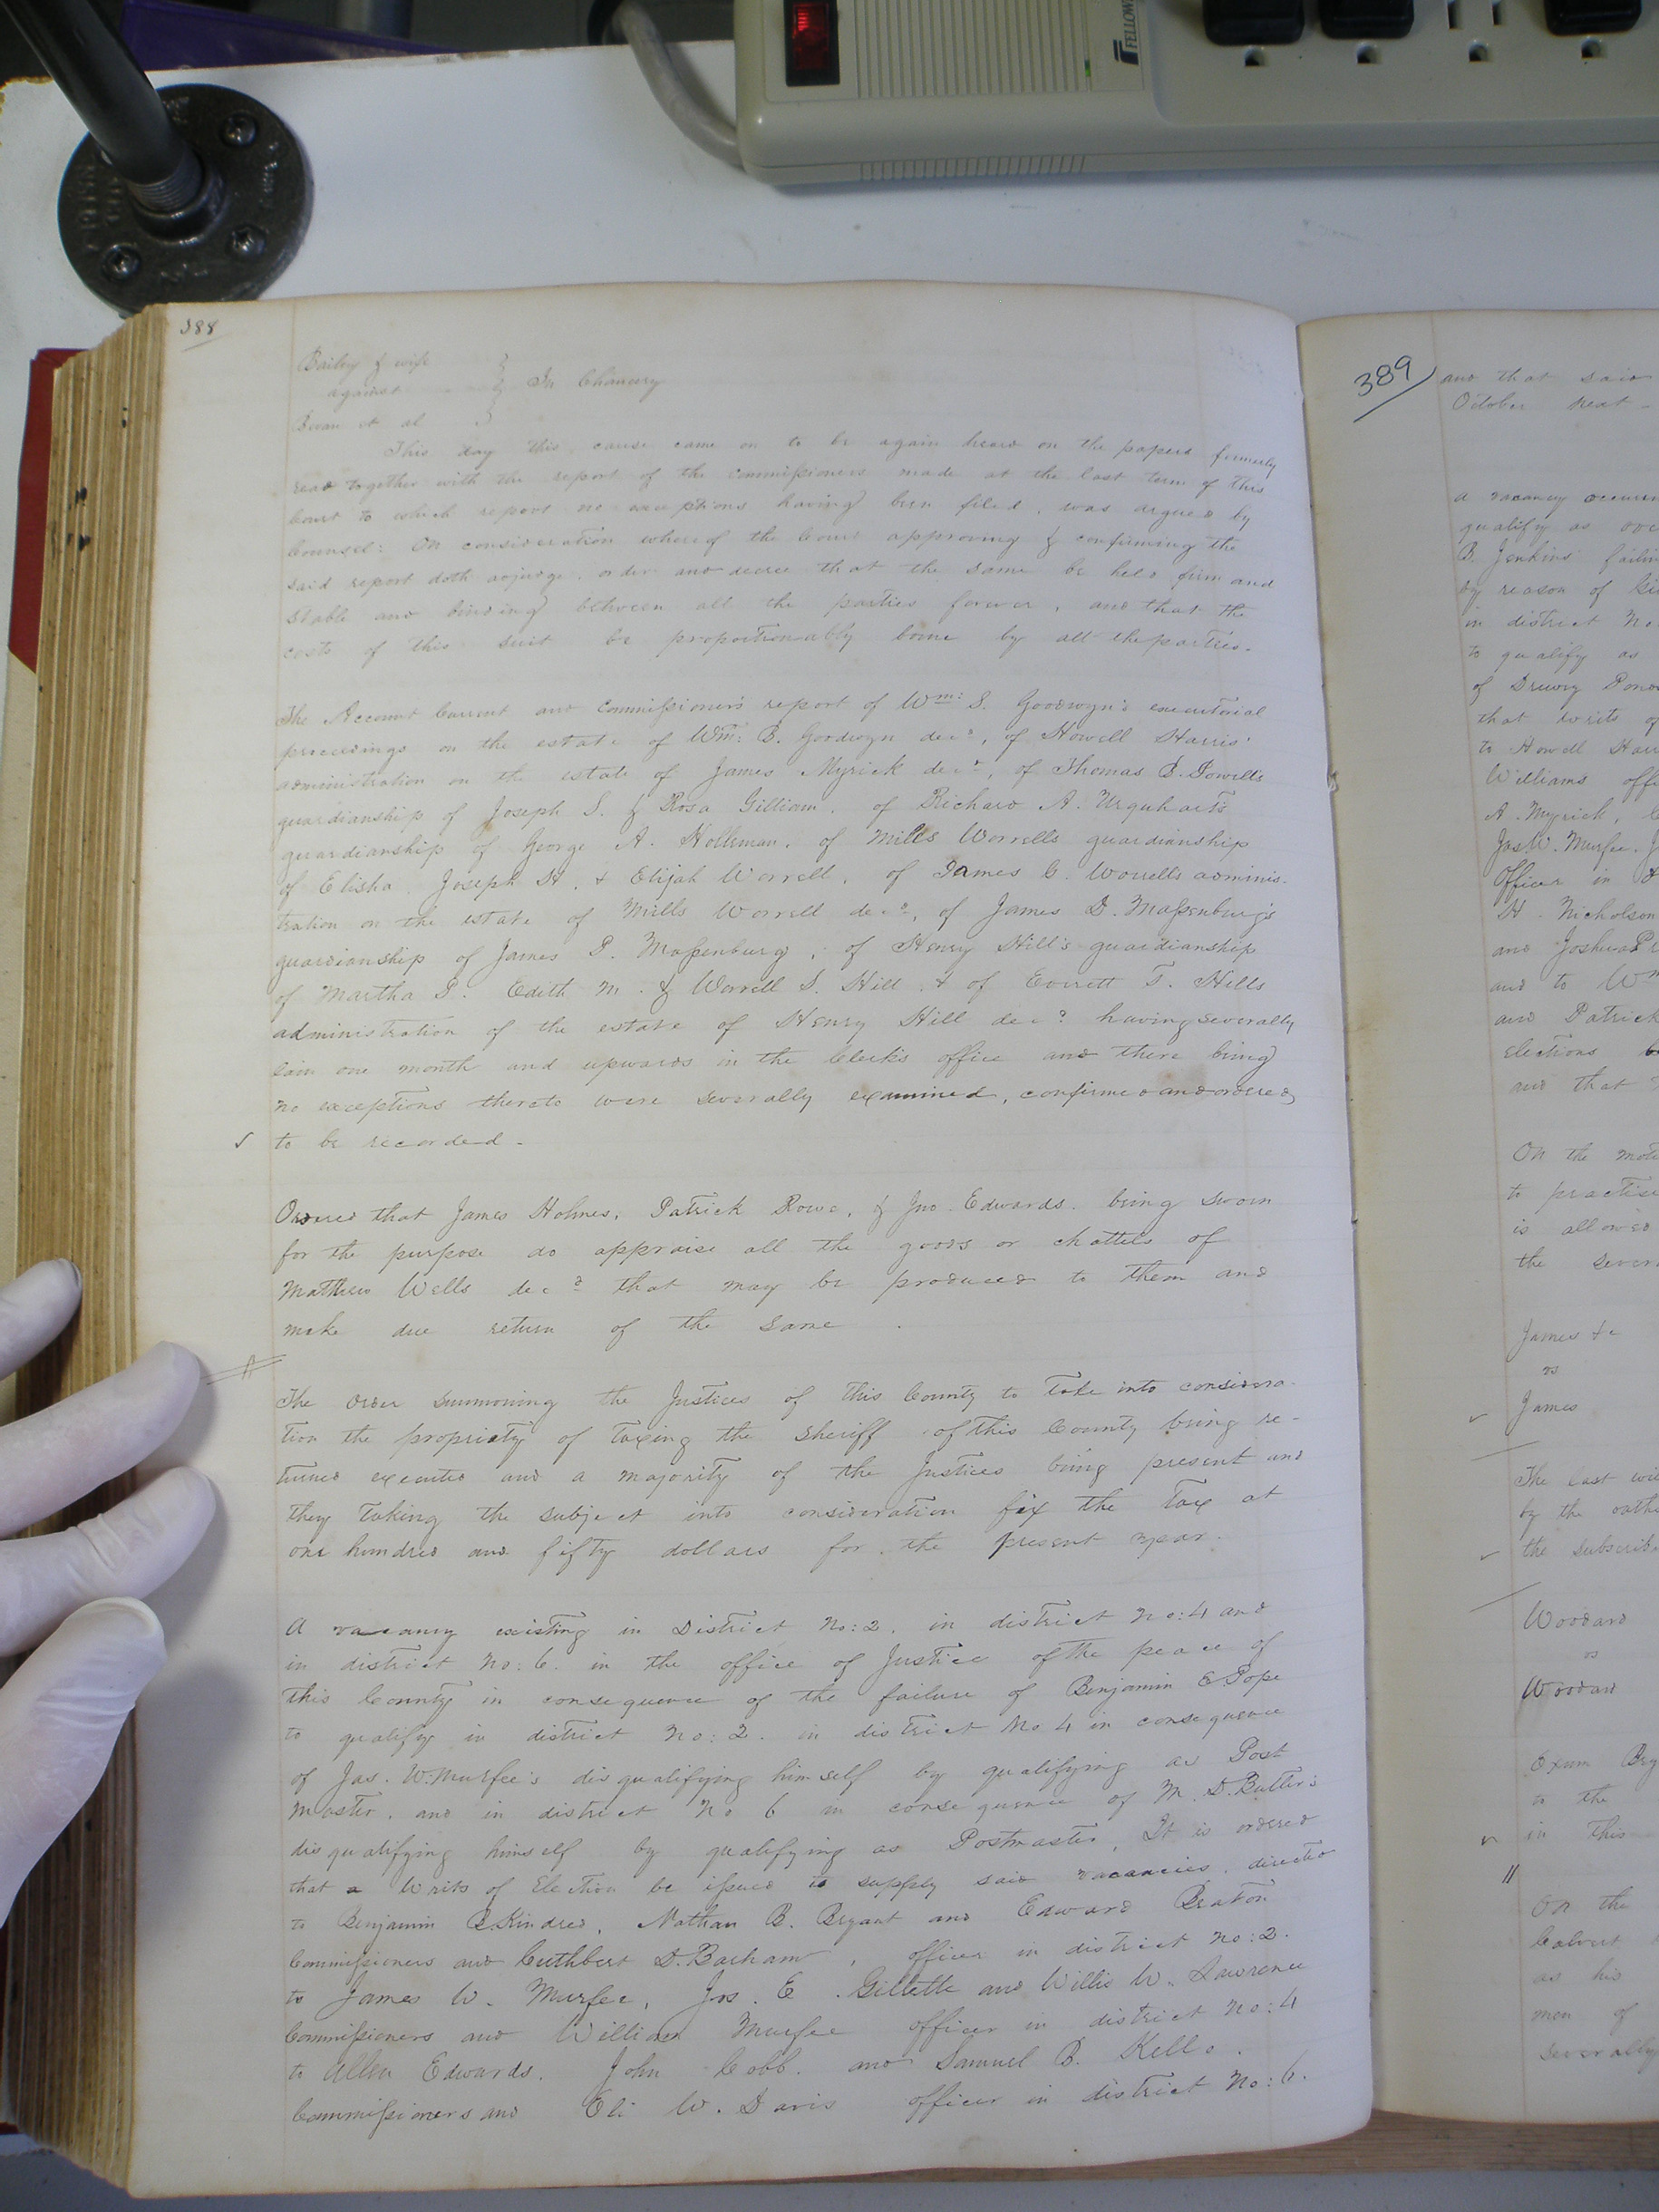 FELLOWES
388
Bailey & wife
against } In Chancery
Bevan et al
This day this cause came on to be again heard on the papers formerly
read together with the report of the commissioners made at the last term of this
Court to which report no exceptions having been filed, was argued by
Counsel: On consideration whereof the Court approving & confirming the
said report doth adjudge, order and decree that the same be held firm and
stable and binding between all the parties forever, and that the
costs of this suit be proportionably borne by all the parties.
The Account Current and Commissioner's report of Wm: S. Goodwyn's executorial
proceedings on the estate of Wm: B. Goodwyn decd, of Howell Harris'
administration on the estate of James Myrick decd, of Thomas B.
guardianship of Joseph S. & Rosa Gilliam, of Richard A. Urquharts
guardianship of George A. Holleman, of Mills Worrells guardianship
of Elisha, Joseph H. & Elijah Worrell, of James C. Worrells adminis-
tration on the estate of Mills Worrell decd, of James D. Massenburg's
guardianship of James P. Massenburg, of Henry Hill's guardianship
of Martha P. Edith M. & Worrell S. Hill & of Everett T. Hills
administration of the estate of Henry Hill decd having severally
lain one month and upwards in the Clerk's office and there being
no exceptions thereto were severally examined, confirmed and ordered
to be recorded -
Ordered that James Holmes, Patrick Rowe, & Jno. Edwards. being sworn
for the purpose do appraise all the goods or chattels of
Matthew Wells decd that may be produced to them and
make due return of the same.
The order summoning the Justices of this County to take into considera-
tion the propriety of taxing the Sheriff of this County being re-
turned executed and a majority of the Justices being present and
they taking the subject into consideration fix the Tax at
one hundred and fifty dollars for the present year.
A vacancy existing in District No: 2. in district No: 4 and
in district No: 6. in the office of Justice of the peace of
this County in consequence of the failure of Benjamin E. Pope
to qualify in district No: 2. in district No 4 in consequence
of Jas. W. Murfee's disqualifying himself by qualifying as Post
Master, and in district No 6 in consequence of M. D. Butler's
disqualifying himself by qualifying as Postmaster, It is ordered
that a Writs of Election be issued to supply said vacancies, directed
to Benjamin B. Kindred, Nathan B. Bryant and Edward Beaton
Commissioners and Cuthbert D. Barham, officer in district No: 2.
to James W. Murfee, Jos. E. Gillette and Willis W. Lawrence
Commissioners and William Murfee officer in district No: 4
to Allen Edwards. John Cobb. and Samuel B. Kello.
Commissioners and Eli W. Davis officer in district No: 6.
389
and that said
October next -
a vacancy
qualify as
B. Jenkins
by reason of
in district No
to qualify as
of Drewry
that writs of
to Howell
Williams
A. Myrick,
Jas W. Murfee.
Officer in
H. Nicholson
and Joshua
and to Wm
and Patrick
elections
and that
On the
to practise
is allowed
the
James &c
vs
James
The last
by the
the
Woodard
vs
Woodard
Exum
to the
in this
On the
Calvert
as his
men of
severally